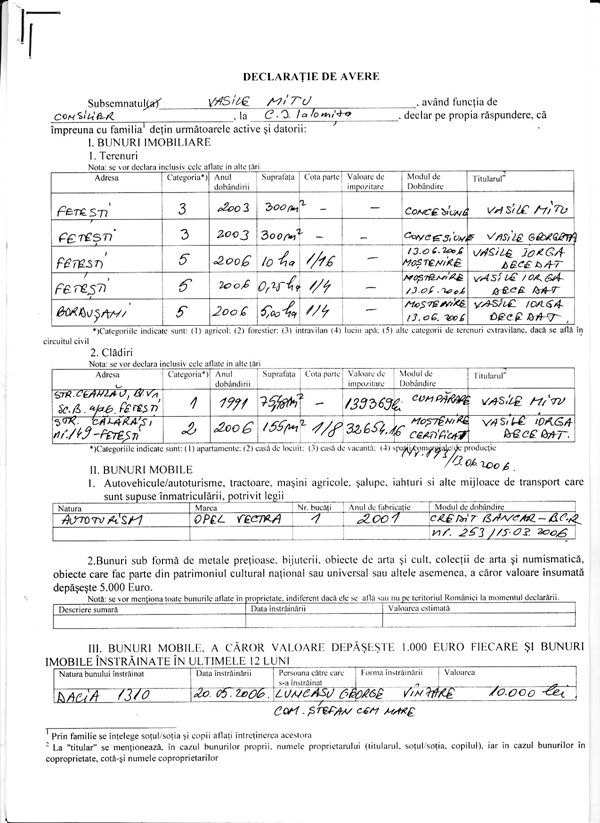 DECLARAȚIE DE AVERE
Subsemnatul(a) VASILE MITU, având funcția de
CONSILIER, la C.J. Ialomița, declar pe propia răspundere, că
împreuna cu familia1 dețin următoarele active și datorii:
I. BUNURI IMOBILIARE
1. Terenuri
Nota: se vor declara inclusiv cele aflate in alte țări
Adresa Categoria*) Anul dobândirii Suprafața Cota parte Valoare de impozitare Modul de Dobândire Titularul2
FETEȘTI 3 2003 300 m2 - - CONCESIUNE VASILE MITU
FETEȘTI 3 2003 300 m2 - - CONCESIUNE VASILE GEORGETA
FETEȘTI 5 2006 10 ha 1/16 - 13.06.2006 MOȘTENIRE VASILE IORGA DECEDAT
FETEȘTI 5 2006 0,25 ha 1/4 - MOȘTENIRE 13.06.2006 VASILE IORGA DECEDAT
BORDUȘANI 5 2006 5,00 ha 1/4 - MOȘTENIRE 13.06.2006 VASILE IORGA DECEDAT
*)Categoriile indicate sunt: (1) agricol; (2) forestier; (3) intravilan (4) luciu apă; (5) alte categorii de terenuri extravilane, dacă se află în
circuitul civil
2. Clădiri
Nota: se vor declara inclusiv cele aflate in alte țări
Adresa Categoria*) Anul dobândirii Suprafața Cota parte Valoare de impozitare Modul de Dobândire Titularul2
STR. CEAHLĂU, Bl V1, Sc. B. FETEȘTI 1 1991 m2 - 139369 lei CUMPĂRARE VASILE MITU
STR. CĂLĂRAȘI nr. 149-FETEȘTI 2 2006 155 m2 1/8 32654.16 MOȘTENIRE CERTIFICAT VASILE IORGA DECEDAT.
*)Categoriile indicate sunt: (1) apartamente; (2) casă de locuit; (3) casă de vacanță; (4) spații comerciale/de producție
/13.06.2006.
II. BUNURI MOBILE
1. Autovehicule/autoturisme, tractoare, mașini agricole, șalupe, iahturi si alte mijloace de transport care
sunt supuse înmatriculării, potrivit legii
Natura Marca Nr. bucăți Anul de fabricație Modul de dobândire
AUTOTURISM OPEL VECTRA 1 2001 CREDIT BANCAR-BCR
nr. 253/15.03.2006
2.Bunuri sub formă de metale prețioase, bijuterii, obiecte de arta și cult, colecții de arta și numismatică,
obiecte care fac parte din patrimoniul cultural național sau universal sau altele asemenea, a căror valoare însumată
depășește 5.000 Euro.
Notă: se vor menționa toate bunurile aflate în proprietate, indiferent dacă ele se află sau nu pe teritoriul României la momentul declarării.
Descriere sumară Data înstrăinării Valoarea estimată
III. BUNURI MOBILE, A CĂROR VALOARE DEPĂȘEȘTE 1.000 EURO FIECARE ȘI BUNURI
IMOBILE ÎNSTRĂINATE ÎN ULTIMELE 12 LUNI
Natura bunului înstrăinat Data înstrăinării Persoana către care s-a înstrăinat Forma înstrăinării Valoarea
DACIA 1310 20.05.2006 LUNCAȘU GEORGE VÎNZARE 10.000 lei
COM. ȘTEFAN CEM MARE
1 Prin familie se înțelege soțul/soția și copii aflați întreținerea acestora
2 La "titular" se menționează, în cazul bunurilor proprii, numele proprietarului (titularul, soțul/soția, copilul), iar în cazul bunurilor în
coproprietate, cotă-și numele coproprietarilor